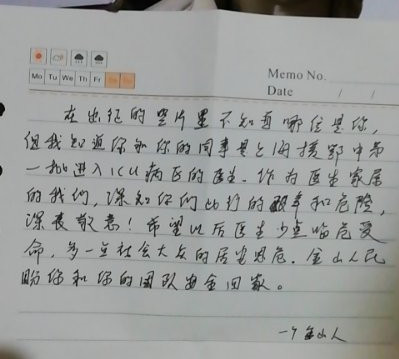 Memo No.
Mo Tu We Th Fr Sa Su
Date / /
在出征的照片里不知道哪位是你,
但我知道你和你的同事是上海援鄂中第
一批进入ICU病区的医生。作为医生家属
的我们,深知你们此行的艰辛和危险,
深表敬意!希望以后医生少点临危受
命,多一点社会大众的居安思危。金山人民
盼你和你的团队安全回家。
一个金山人